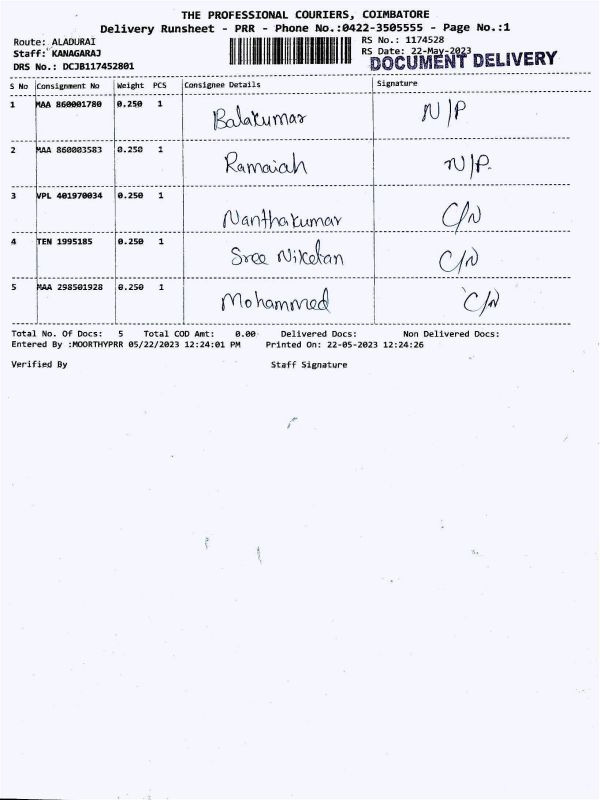 THE PROFESSIONAL COURIERS, COIMBATORE
Delivery Runsheet - PRR - Phone No.:0422-3505555 - Page No.:1
Route: ALADURAI RS No.: 1174528
Staff: KANAGARAJ RS Date: 22-May-2023
DRS No.: DCJB117452801 DOCUMENT DELIVERY
S No Consignment No Weight PCS Consignee Details Signature
1 MAA 860001780 0.250 1 Balakumar N/P
2 MAA 860003583 0.250 1 Ramaiah N/P.
3 VPL 401970034 0.250 1 Nanthakumar C/N
4 TEN 1995185 0.250 1 Sree Niketan C/N
5 MAA 298501928 0.250 1 Mohammed C/N
Total No. Of Docs: 5 Total COD Amt: 0.00 Delivered Docs: Non Delivered Docs:
Entered By :MOORTHYPRR 05/22/2023 12:24:01 PM Printed On: 22-05-2023 12:24:26
Verified By Staff Signature